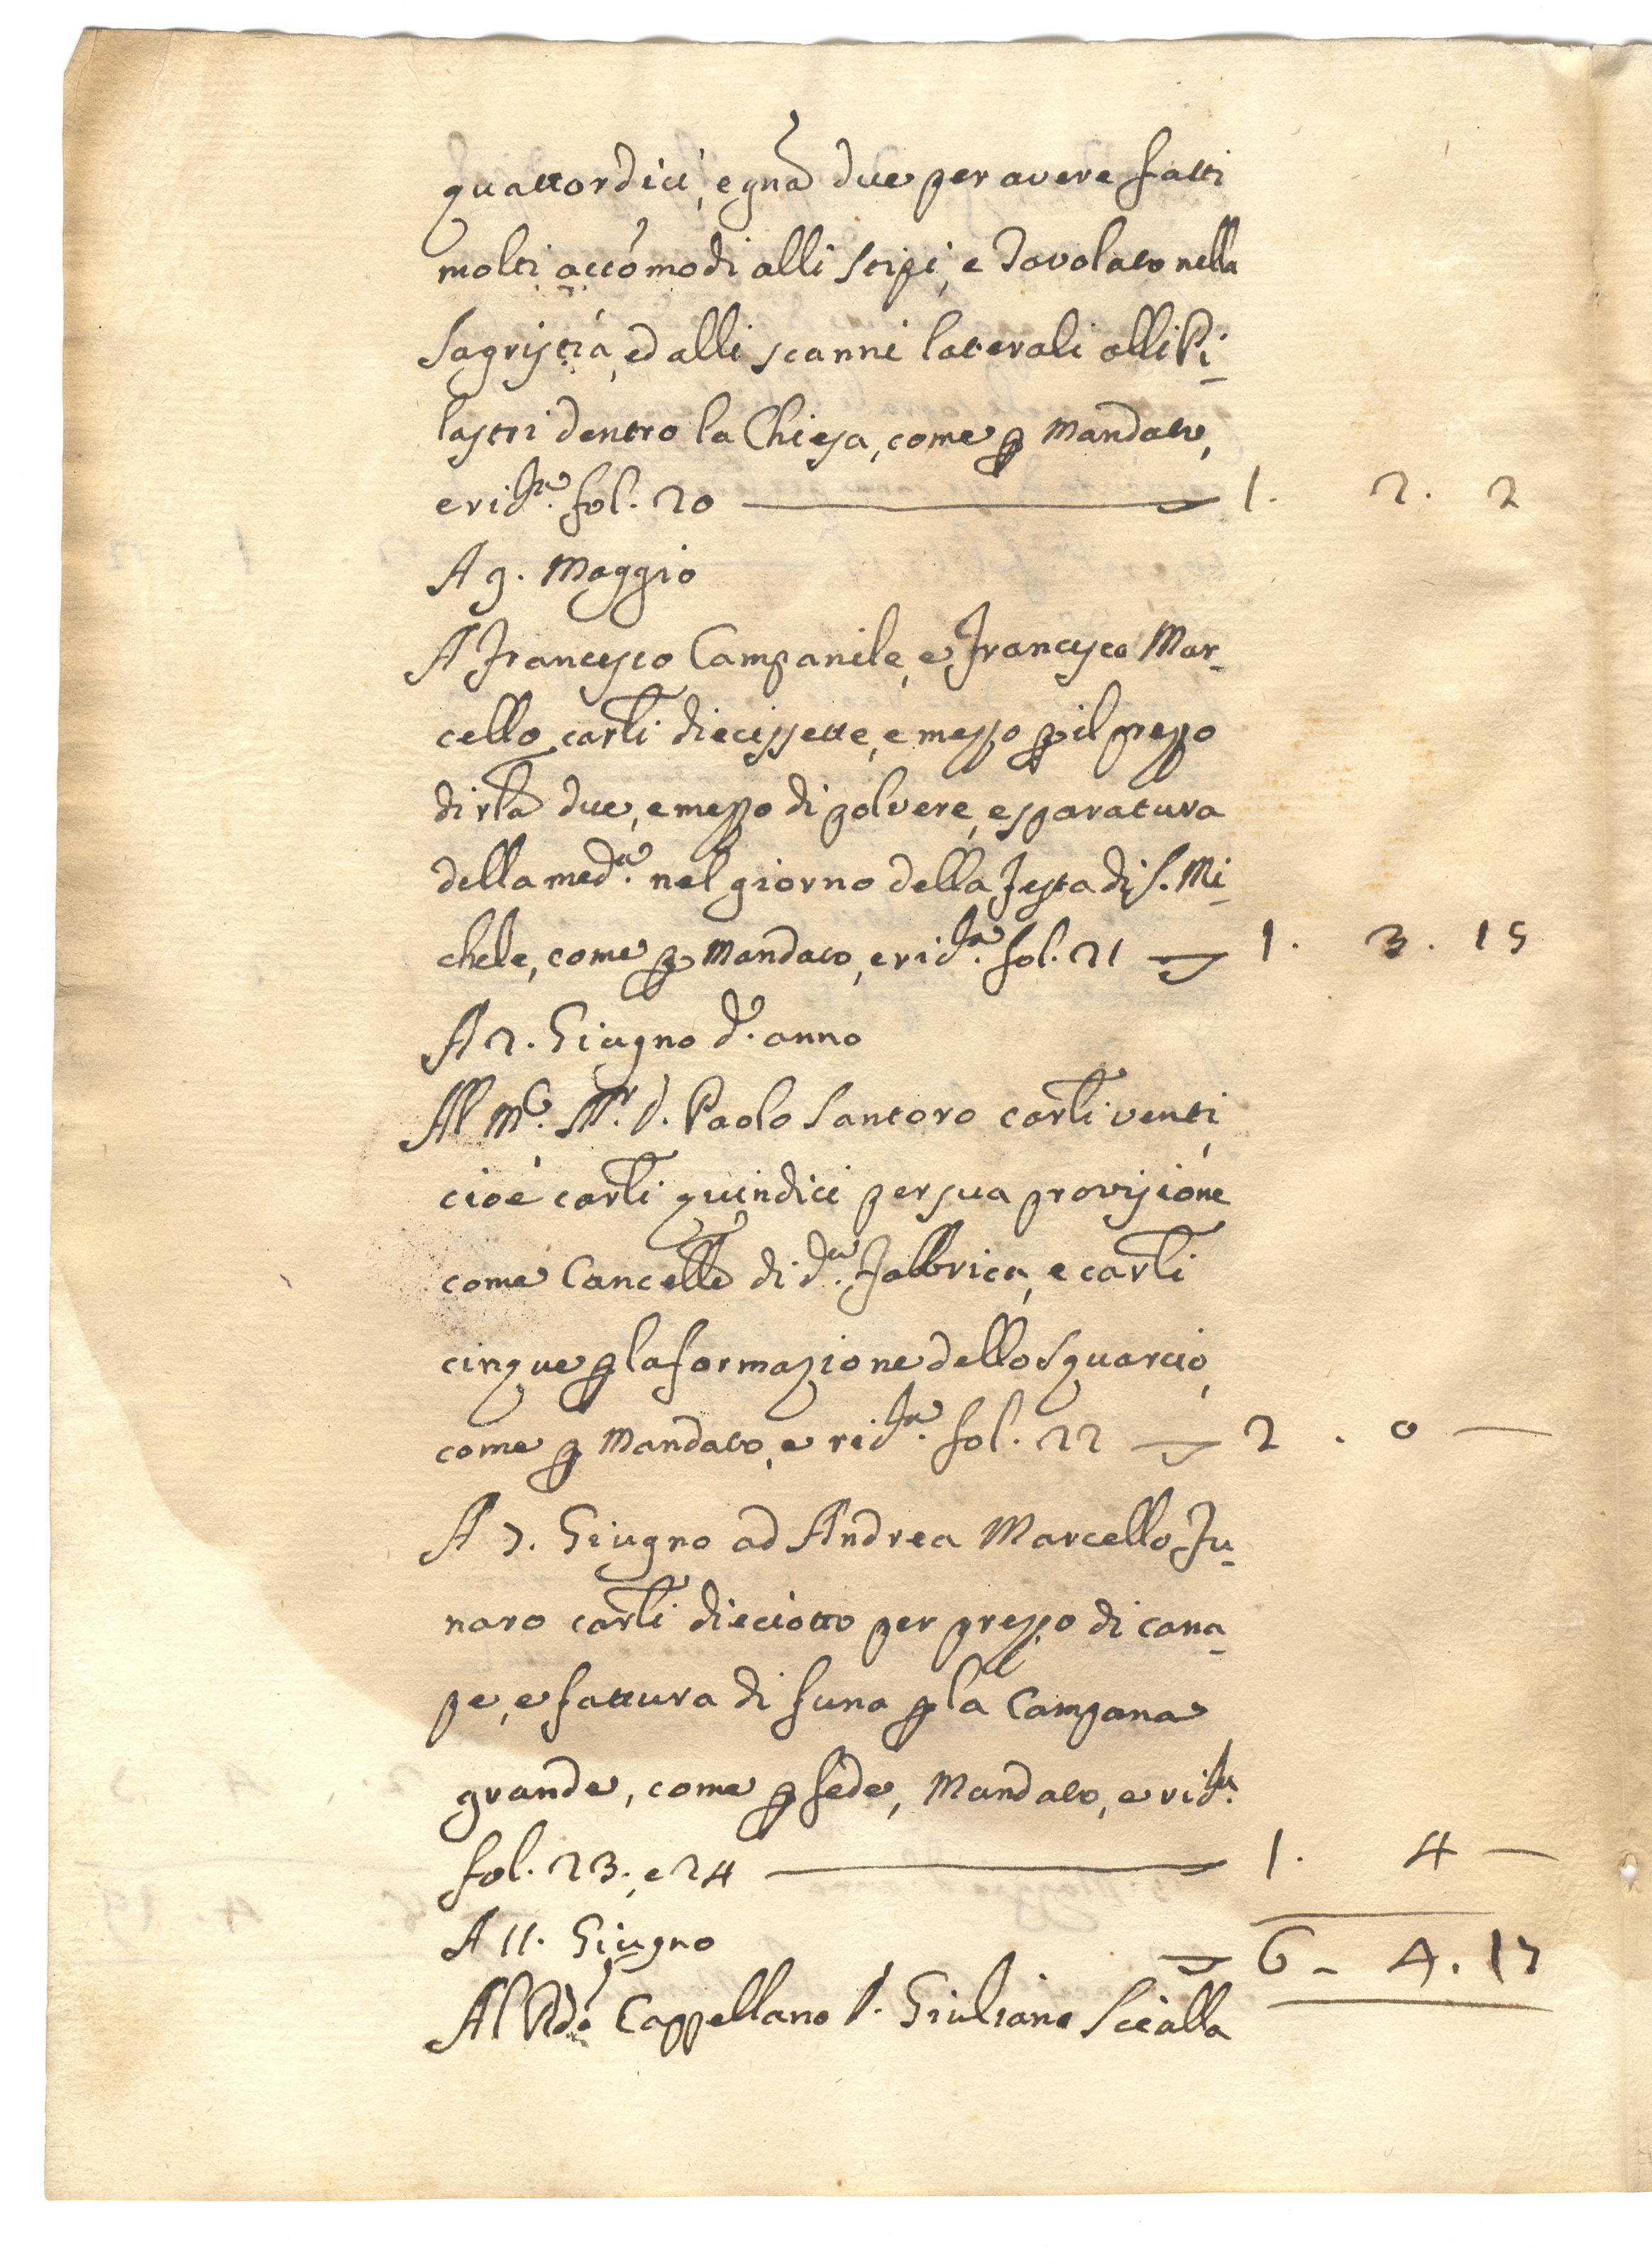 quattordici, e gna due per avere fatti
molti accomodi alli stipi, e Tavolato nella
Sagristia, ed alli scanni laterali alli Pi-
lastri dentro la Chiesa, come p Mandato,
e ric.ta fol. 20 — 1. 2. 2
A 9. Maggio
A Francesco Campanile, e Francesco Mar-
cello carli diecissette, e mezzo p il prezzo
di rla due, e mezzo di polvere, e sparatura
della med.a nel giorno della Festa di S. Mi-
chele, come p Mandato, e ric.ta fol. 21 — 1. 3. 15
A 2. Giugno d.o anno
Al M.co D. Paolo Santoro carli venti,
cioè carli quindici per sua provisione
come Cancelle di d.a Fabbrica, e carli
cinque p la formazione dello Squarcio,
come p Mandato, e ric.ta fol. 22 — 2. 0 —
A 7. Giugno ad Andrea Marcello Fu-
naro carli dieciotto per prezzo di cana-
pe, e fattura di funa p la Campana
grande, come p fede, Mandato, e ric.ta
fol. 23. e 24 — 1. 4 —
A 11. Giugno — 6 - 4. 17
Al Rdo Cappellano D. Giuliano Scialla